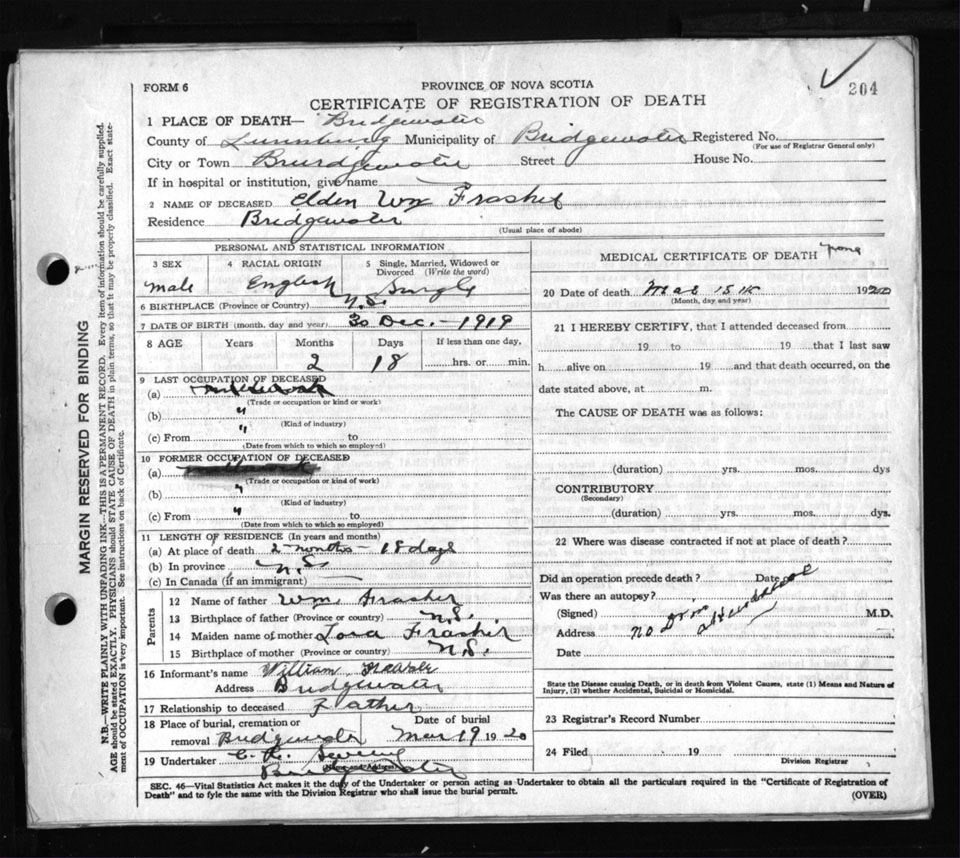 FORM 6
PROVINCE OF NOVA SCOTIA
204
CERTIFICATE OF REGISTRATION OF DEATH
1 PLACE OF DEATH— Bridgewater
County of Lunenburg Municipality of Bridgewater Registered No.
(For use of Registrar General only)
City or Town Bridgewater Street House No.
If in hospital or institution, give name
2 NAME OF DECEASED Elden Wm Frasher
Residence Bridgewater
(Usual place of abode)
PERSONAL AND STATISTICAL INFORMATION
3 SEX 4 RACIAL ORIGIN 5 Single, Married, Widowed or Divorced (Write the word)
male English Single
6 BIRTHPLACE (Province or Country) N.S.
7 DATE OF BIRTH (month, day and year) 30 Dec. - 1919
8 AGE Years Months Days If less than one day,
2 18 hrs. or min.
9 LAST OCCUPATION OF DECEASED
(a)
(Trade or occupation or kind or work)
(b) "
(Kind of industry)
(c) From " to
(Date from which to which so employed)
10 FORMER OCCUPATION OF DECEASED
(a)
(Trade or occupation or kind of work)
(b) "
(Kind of industry)
(c) From " to
(Date from which to which so employed)
11 LENGTH OF RESIDENCE (In years and months)
(a) At place of death 2 - months - 18 days
(b) In province N.S.
(c) In Canada (if an immigrant)
Parents
12 Name of father Wm. Frasher
13 Birthplace of father (Province or country) N.S.
14 Maiden name of mother Lora Frasher
15 Birthplace of mother (Province or country) N.S.
16 Informant's name William
Address Bridgewater
17 Relationship to deceased Father
18 Place of burial, cremation or removal Bridgewater Date of burial Mar 19 1920
19 Undertaker C. H.
Bridgewater
MEDICAL CERTIFICATE OF DEATH
20 Date of death Mar 15th 1920
(Month, day and year)
21 I HEREBY CERTIFY, that I attended deceased from
19 to 19 that I last saw
h alive on 19 and that death occurred, on the
date stated above, at m.
The CAUSE OF DEATH was as follows:
(duration) yrs. mos. dys
CONTRIBUTORY
(Secondary)
(duration) yrs. mos. dys.
22 Where was disease contracted if not at place of death?
Did an operation precede death? Date of
Was there an autopsy?
(Signed) M.D.
Address no Dr in
Date
State the Disease causing Death, or in death from Violent Causes, state (1) Means and Nature of
Injury, (2) whether Accidental, Suicidal or Homicidal.
23 Registrar's Record Number
24 Filed 19
Division Registrar
SEC. 46—Vital Statistics Act makes it the duty of the Undertaker or person acting as Undertaker to obtain all the particulars required in the "Certificate of Registration of
Death" and to fyle the same with the Division Registrar who shall issue the burial permit.
(OVER)
MARGIN RESERVED FOR BINDING
N.B.—WRITE PLAINLY WITH UNFADING INK—THIS IS A PERMANENT RECORD. Every item of information should be carefully supplied.
AGE should be stated EXACTLY. PHYSICIANS should STATE CAUSE OF DEATH in plain terms, so that it may be properly classified. Exact statement of OCCUPATION is very important. See instructions on back of Certificate.